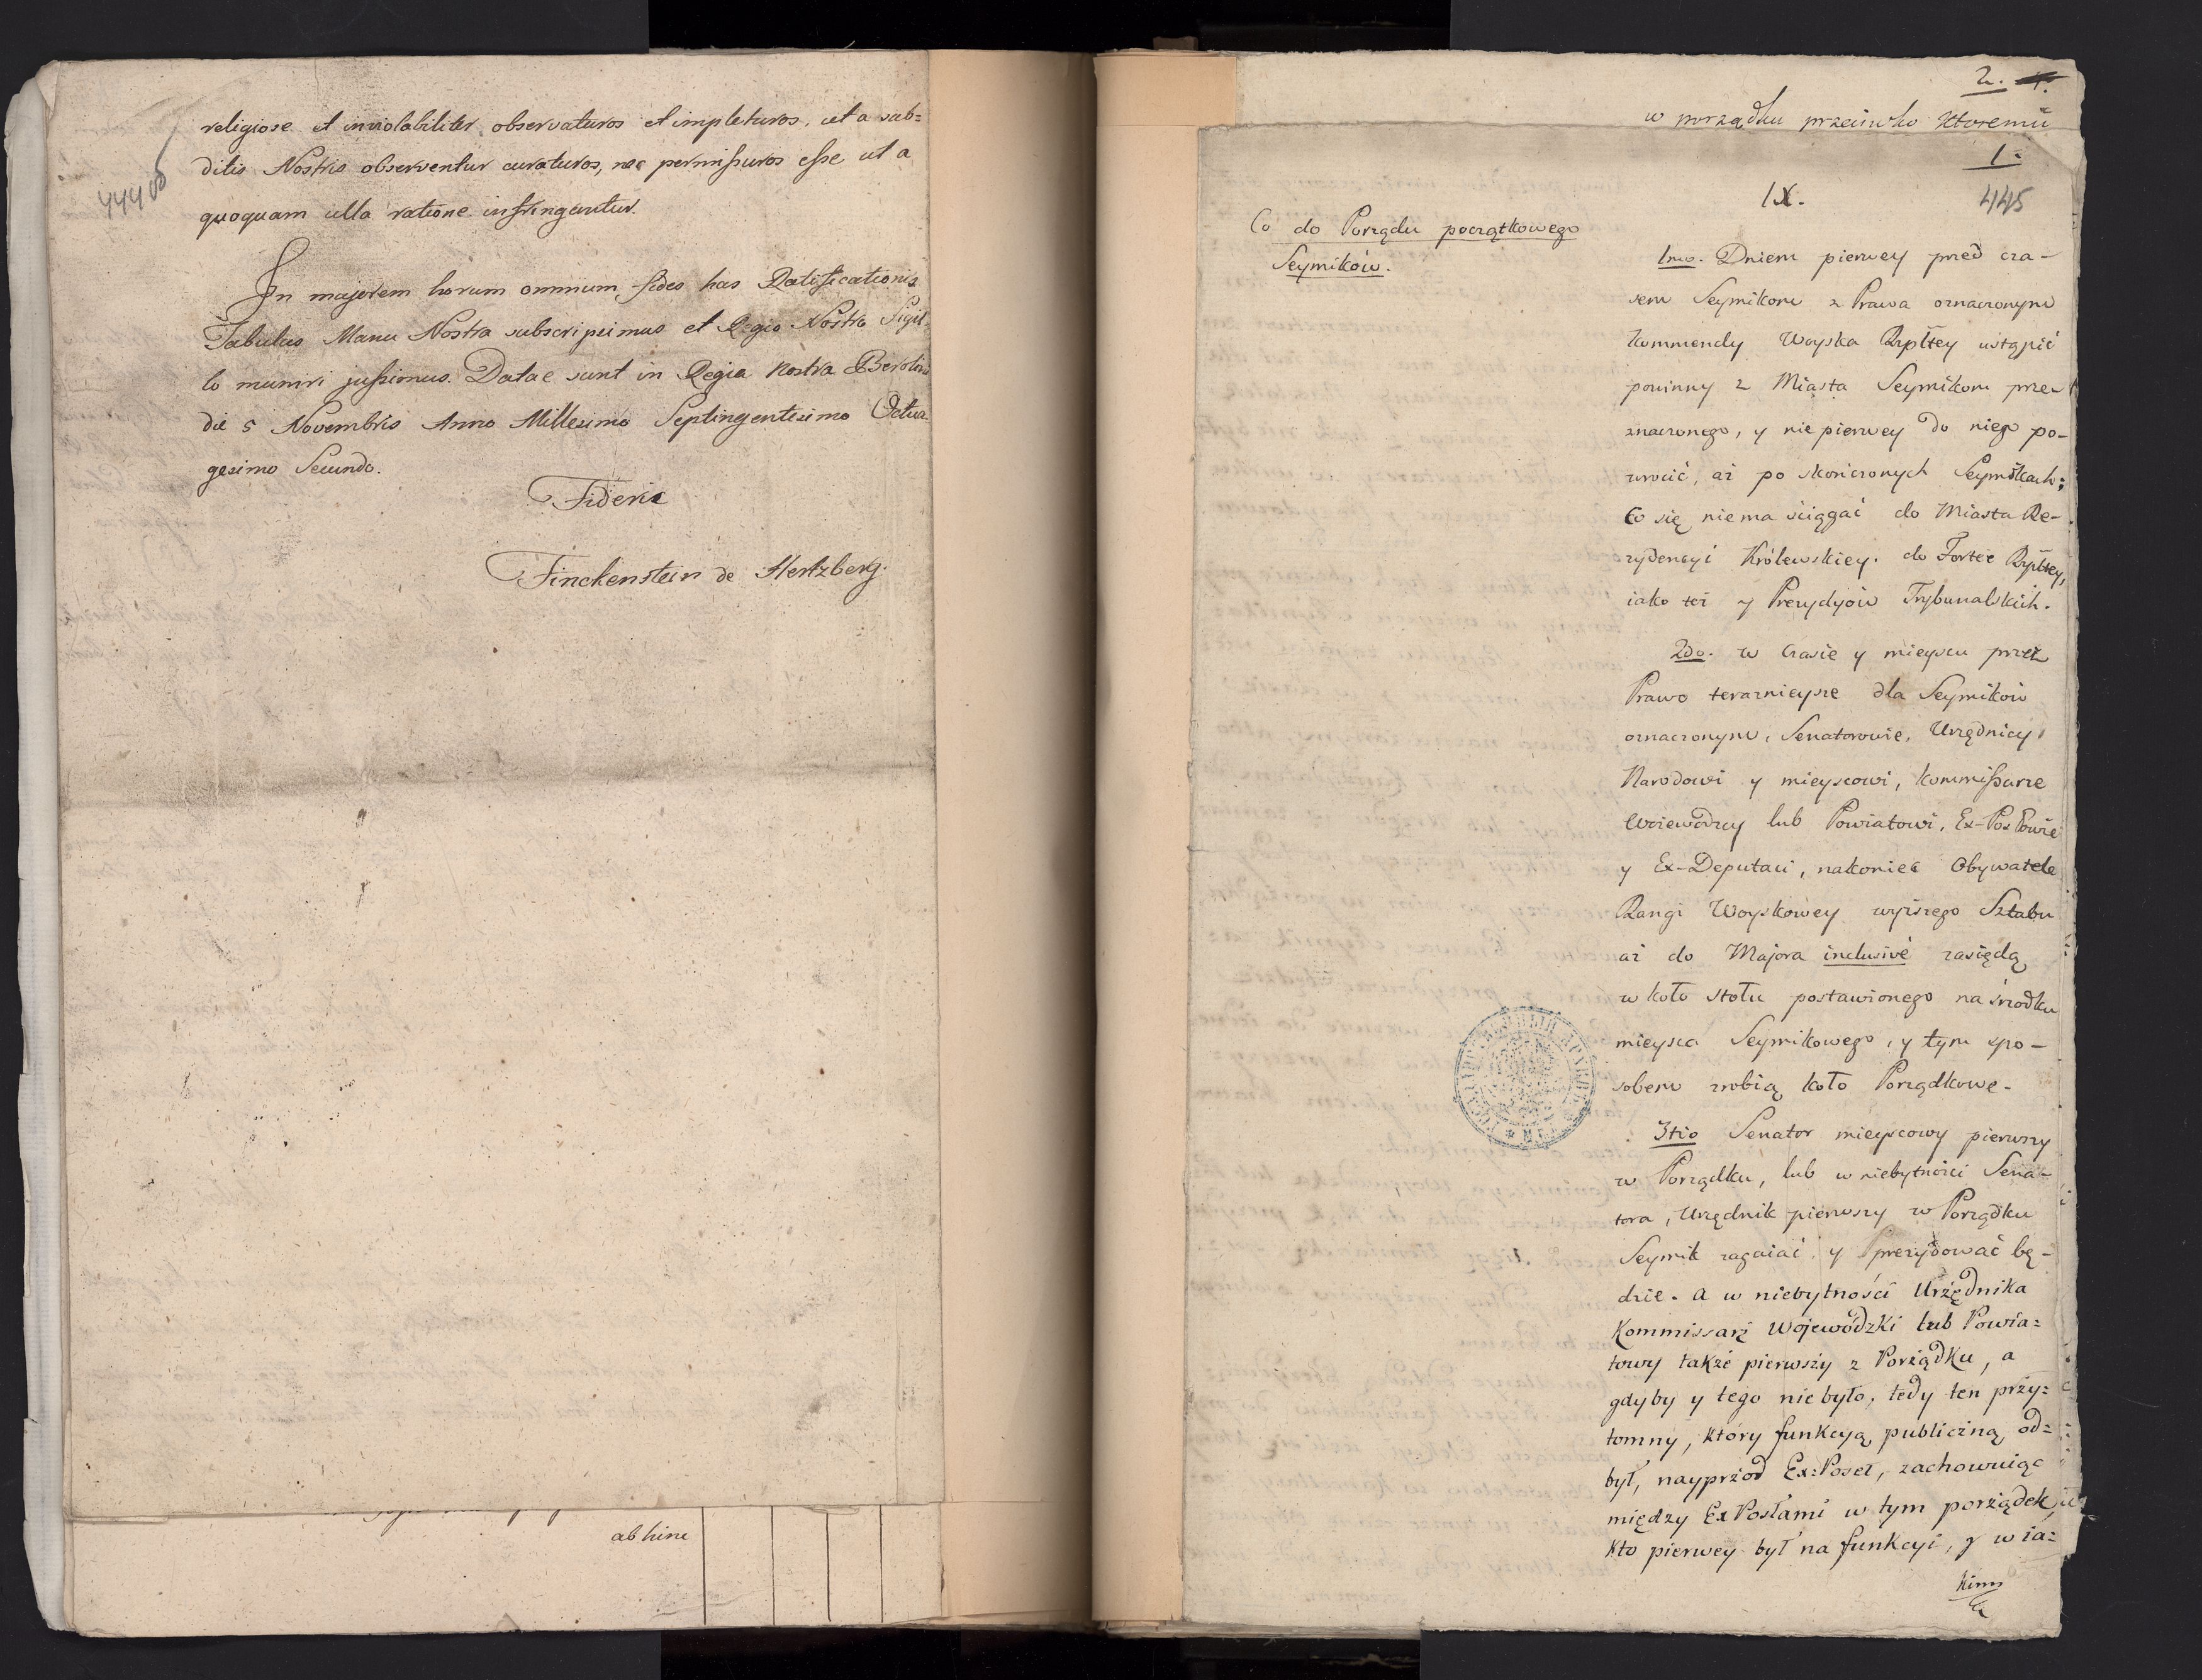 444
religiose et inviolabiliter observaturos et impleturos, et a sub=
ditis Nostris observentur curaturos, nec permissuros esse ut a
quoquam ulla ratione infringantur.
In majorem horum omnium fidem has Ratificationis
Tabulas Manu Nostra subscripsimus et Regio Nostro Sigil=
lo muniri jussimus. Datae sunt in Regia Nostra Berolini
die 5 Novembris Anno Millesimo Septingentesimo Octua=
gesimo Secundo.
Frideric
Finckenstein de Hertzberg.
ab hinc
2.
w porządku przeciwko któremu
1.
445
IX.
Co do Porządu początkowego
Seymików.
1mo. Dniem pierwey przed cza-
sem Seymikom z Prawa oznaczonym
Kommendy Woyska Rzpltey ustąpić
powinny z Miasta Seymikom prze-
znaczonego, y nie pierwey do niego po-
wrócić, aż po skończonych Seymikach;
Co się niema ściągać do Miasta Re-
zydencyi Królewskiey. do Fortec Rzpltey,
iako też y Prezydyów Trybunalskich.
2do. w Czasie y mieyscu przez
Prawo teraznieysze dla Seymików
oznaczonym, Senatorowie, Urzędnicy
Narodowi y mieyscowi, Kommissarze
Woiewódzcy lub Powiatowi, Ex-Posłowie
y Ex-Deputaci, nakoniec Obywatele
Rangi Woyskowey wyższego Sztabu
aż do Majora inclusivé zasiędą
w koło stołu postawionego na środku
mieysca Seymikowego, y tym spo-
sobem zrobią koło Porządkowe.
3tio Senator mieyscowy pierwszy
w Porządku, lub w niebytności Sena-
tora, Urzędnik pierwszy w Porządku
Seymik zagaiać y prezydować bę-
dzie. a w niebytności Urzędnika
Kommissarz Wojewódzki lub Powia=
towy także pierwszy z Porządku, a
gdyby y tego nie było, tedy ten przy=
tomny, który funkcyą publiczną od=
był, nayprzod Ex=Poseł, zachowuiąc
między Ex Posłami w tym porządek,
kto pierwey był na funkcyi, y w ia=
kim